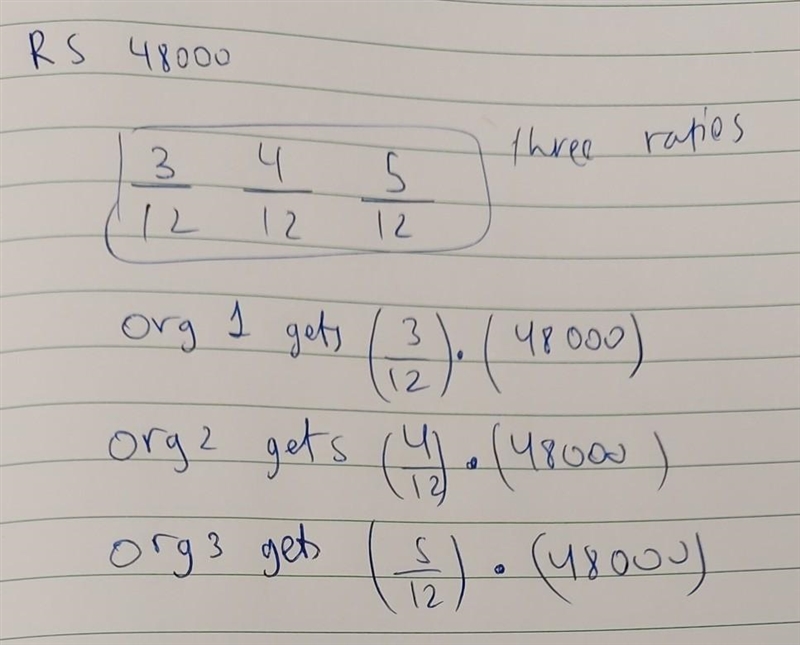 RS 48000
3/12 4/12 5/12 three raties
org 1 gets (3/12) . (48000)
org 2 gets (4/12) . (48000)
org 3 gets (5/12) . (48000)